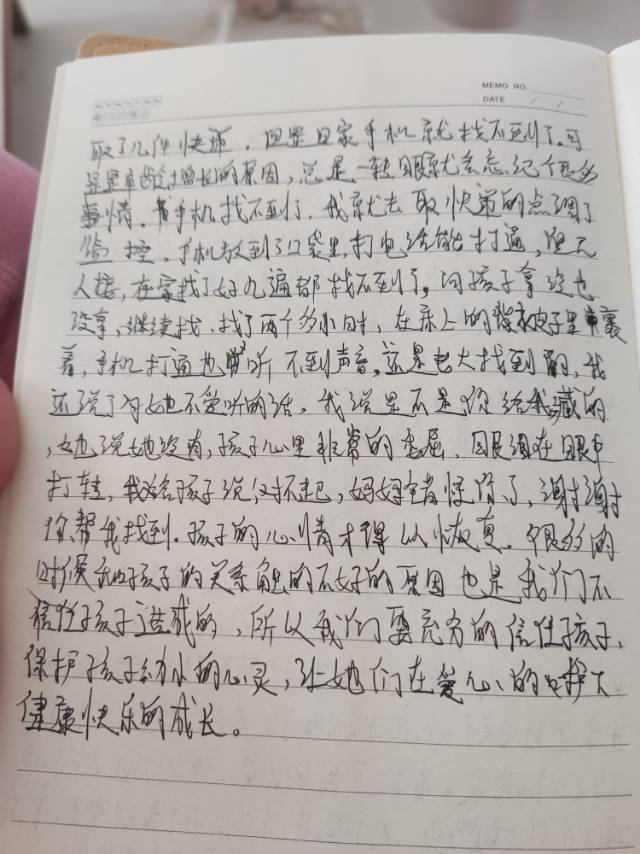 MEMO NO.
DATE / /
取了几件快递，但是回家手机就找不到了。可
是是年龄增长的原因，总是一转眼就会忘记很多
事情。手机找不到了，我就去取快递的点调了
监控，手机放到了口袋里，打电话能打通，但无
人接，在家找了好几遍都找不到了，问孩子拿没也
没拿，继续找，找了两个多小时，在床上的被子里裹
着，手机打通也听不到声音，还是老大找到的，我
还说了对她不爱听的话，我说是不是你给我藏的
，她说她没有，孩子心里非常的委屈，眼泪在眼中
打转，我给孩子说对不起，妈妈错怪你了，谢谢
你帮我找到。孩子的心情才得以恢复。很多的
时候和孩子的关系的不好的原因也是我们不
信任孩子造成的，所以我们要充分的信任孩子，
保护孩子幼小的心灵，让她们在爱心的呵护下
健康快乐的成长。